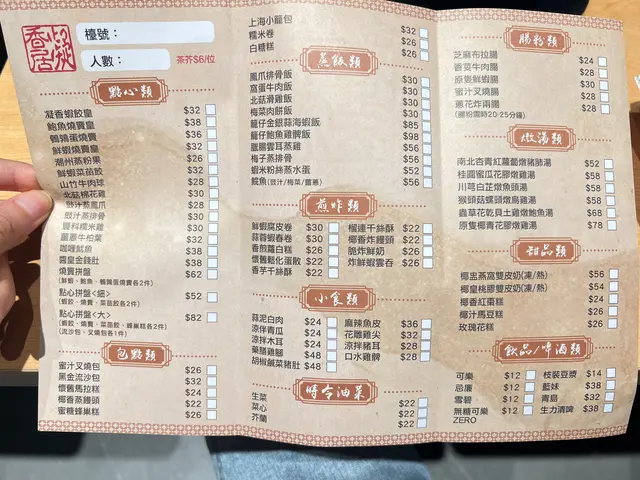 檯號：
人數：
茶芥$6/位
點心類
凝香蝦餃皇 $32
鮑魚燒賣皇 $38
鵪鶉蛋燒賣 $36
鮮蝦燒賣皇 $32
潮州蒸粉果 $26
鮮蝦菜苗餃 $32
山竹牛肉球 $28
北菇棉花雞 $30
豉汁蒸鳳爪 $28
豉汁蒸排骨 $30
醬料糯米雞
薑蔥牛柏葉 $32
咖喱魷魚 $38
醬皇金錢肚 $38
燒賣拼盤 $62
(鮮蝦、鮑魚、鵪鶉蛋燒賣各2件)
點心拼盤<細> $52
(蝦餃、燒賣、菜苗餃各2件)
點心拼盤<大> $82
(蝦餃、燒賣、菜苗餃、蜂巢糕各2件)
(流沙包、叉燒包各1件)
包點類
蜜汁叉燒包 $26
黑金流沙包 $32
懷舊馬拉糕 $24
椰香蒸饅頭 $22
蜜糖蜂巢糕 $26
上海小籠包 $32
糯米卷 $26
白糖糕 $26
蒸飯類
鳳爪排骨飯 $30
窩蛋牛肉飯 $30
北菇滑雞飯 $30
梅菜肉餅飯 $30
籠仔金銀蒜海蝦飯 $85
籠仔鮑魚雞髀飯 $98
臘腸雲耳蒸雞 $56
梅子蒸排骨 $56
蝦米粉絲蒸水蛋 $52
鯇魚(豉汁/梅菜/薑蔥) $56
煎炸類
鮮蝦腐皮卷 $30
蒜蓉蝦春卷 $30
香煎蘿白糕 $26
懷舊鬆化蛋散 $26
香芋千絲酥 $22
榴連千絲酥 $22
椰香炸饅頭 $22
脆炸鮮奶 $26
炸鮮蝦雲吞 $26
小食類
蒜泥白肉 $24
涼伴青瓜 $24
涼拌木耳 $24
藥膳雞腳 $48
胡椒鹹菜豬肚 $48
麻辣魚皮 $36
花雕雞尖 $32
涼拌豬耳 $28
口水雞髀 $28
時令油菜
生菜 $22
菜心 $22
芥蘭 $22
腸粉類
芝麻布拉腸 $24
香茭牛肉腸 $28
原隻鮮蝦腸 $28
蜜汁叉燒腸 $28
蔥花炸兩腸 $28
(腸粉需時20-25分鐘)
燉湯類
南北杏青紅蘿蔔燉豬腱湯 $52
桂圓蜜瓜花膠燉雞湯 $58
川芎白芷燉魚頭湯 $58
猴頭菇螺頭燉烏雞湯 $58
蟲草花乾貝土雞燉鮑魚湯 $68
原隻椰青花膠燉雞湯 $78
甜品類
椰盅燕窩雙皮奶(凍/熱) $56
椰皇桃膠雙皮奶(凍/熱) $54
椰香紅棗糕 $24
椰汁馬豆糕 $26
玫瑰花糕 $26
飲品/啤酒類
可樂 $12
忌廉 $12
雪碧 $12
無糖可樂 $12
ZERO
枝裝豆漿 $14
藍妹 $38
青島 $32
生力清啤 $38